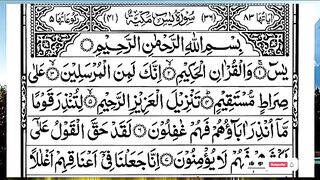 اٰیَاتُهَا ٨٣ (٣٦) سُوْرَةُ یٰسٓ مَكِّیَّةٌ (٤١) رُكُوْعَاتُهَا ٥
بِسْمِ اللّٰهِ الرَّحْمٰنِ الرَّحِیْمِ
یٰسٓ ﴿١﴾ وَالْقُرْاٰنِ الْحَكِیْمِ ﴿٢﴾ اِنَّكَ لَمِنَ الْمُرْسَلِیْنَ ﴿٣﴾ عَلٰی
صِرَاطٍ مُّسْتَقِیْمٍ ﴿٤﴾ تَنْزِیْلَ الْعَزِیْزِ الرَّحِیْمِ ﴿٥﴾ لِتُنْذِرَ قَوْمًا
مَّاۤ اُنْذِرَ اٰبَآؤُهُمْ فَهُمْ غٰفِلُوْنَ ﴿٦﴾ لَقَدْ حَقَّ الْقَوْلُ عَلٰۤی
فَهُمْ لَا یُؤْمِنُوْنَ ﴿٧﴾ اِنَّا جَعَلْنَا فِیْۤ اَعْنَاقِهِمْ اَغْلٰلًا